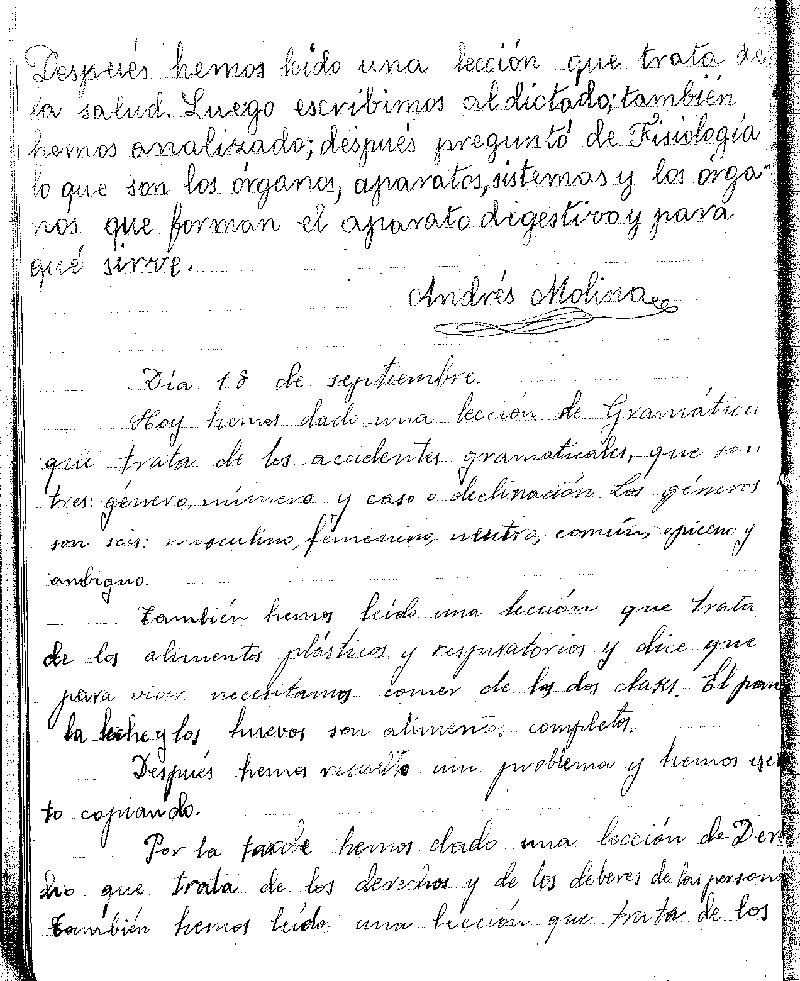 Después hemos leído una lección que trata de
la salud. Luego escribimos al dictado; también
hemos analizado; después preguntó de Fisiología
lo que son los órganos, aparatos, sistemas y los órga-
nos que forman el aparato digestivo y para
qué sirve.
Andrés Molina
Día 18 de septiembre.
Hoy hemos dado una lección de Gramática
que trata de los accidentes gramaticales, que son
tres: género, número y caso o declinación. Los géneros
son seis: masculino, femenino, neutro, común, epiceno y
ambiguo.
También hemos leído una lección que trata
de los alimentos plásticos y respiratorios y dice que
para vivir necesitamos comer de las dos clases. El pan
la leche y los huevos son alimentos completos.
Después hemos resuelto un problema y hemos escri
to copiando.
Por la tarde hemos dado una lección de Dere
cho que trata de los derechos y de los deberes de las person
También hemos leído una lección que trata de los